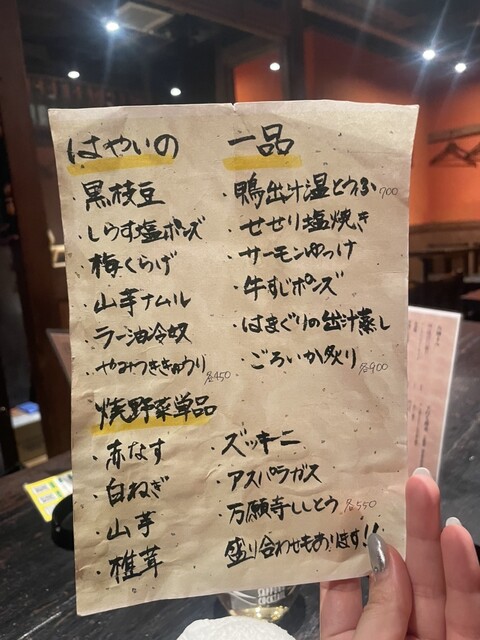 はやいの
・黒枝豆
・しらす塩ポンズ
・梅くらげ
・山芋ナムル
・ラー油冷奴
・やみつききゅうり 各450
一品
・鴨出汁湯とうふ 900
・せせり塩焼き
・サーモンゆっけ
・牛すじポンズ
・はまぐりの出汁蒸し
・ごろいか炙り 各900
焼野菜単品
・赤なす
・白ねぎ
・山芋
・椎茸
・ズッキーニ
・アスパラガス
・万願寺ししとう 各550
盛り合わせもあります!!